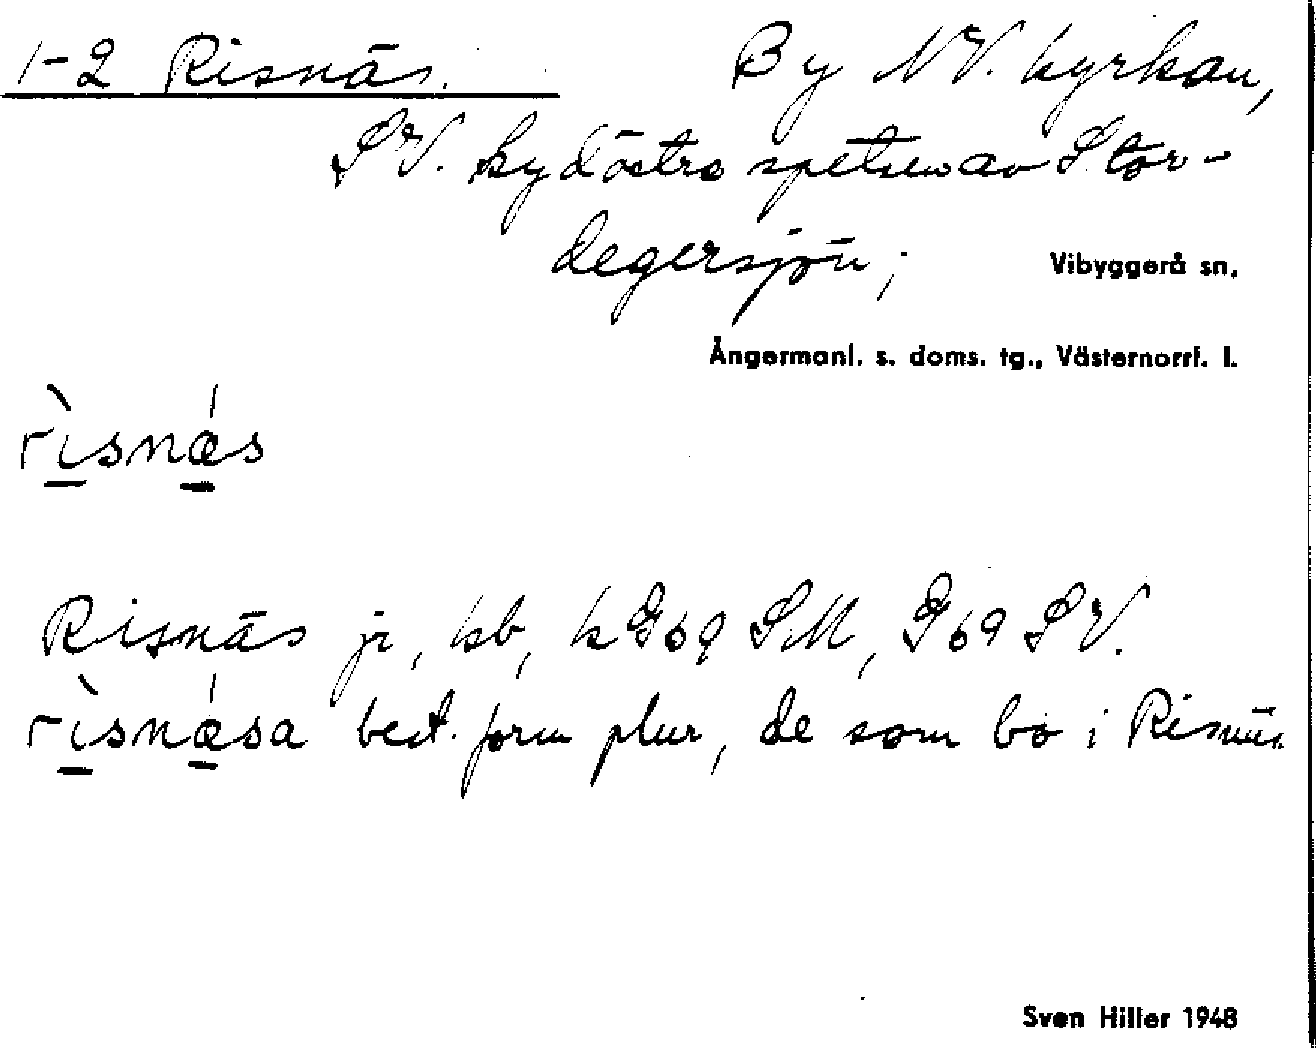 1-2 Risnäs. By NV. kyrkan,
SV. sydöstra spetsen av Stor-
degersjön;
Vibyggerå sn.
Ångermanl. s. doms. tg., Västernorrl. l.
rìsnǽs
Risnäs jr, kb, k G69 SM, G69 SV.
rìsnǽsa best. form plur, de som bo i Risnäs
Sven Hiller 1948